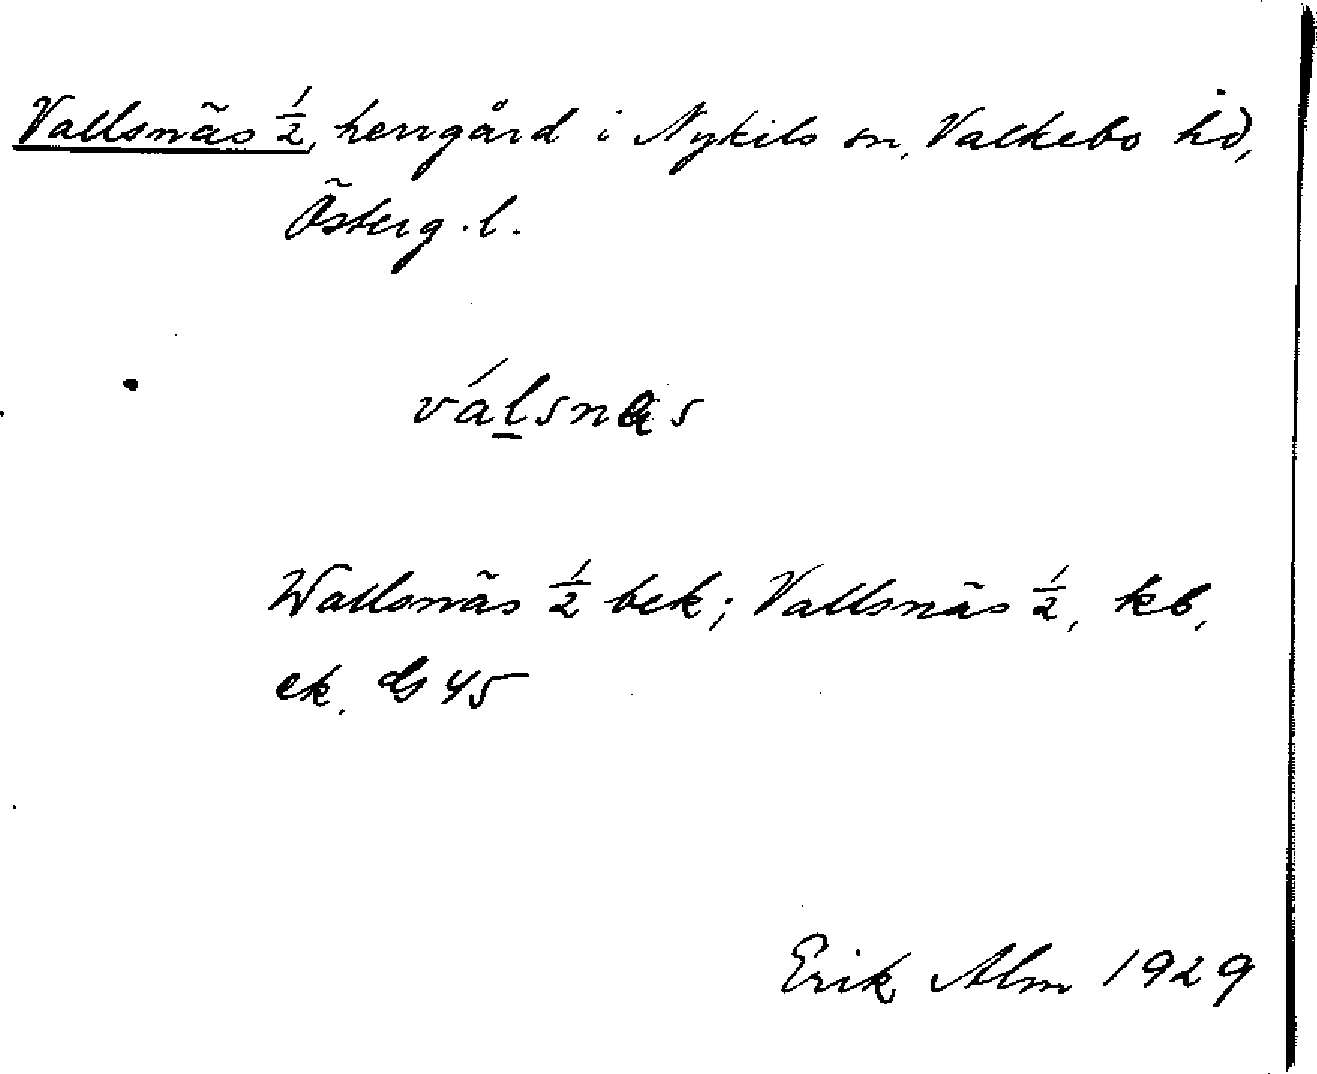 Vallsnäs ½, herrgård i Nykils sn, Valkebo hd,
Österg.l.
válsnäs
Wallsnäs ½ bek; Vallsnäs ½, kb,
ek. G 45
Erik Alm 1929